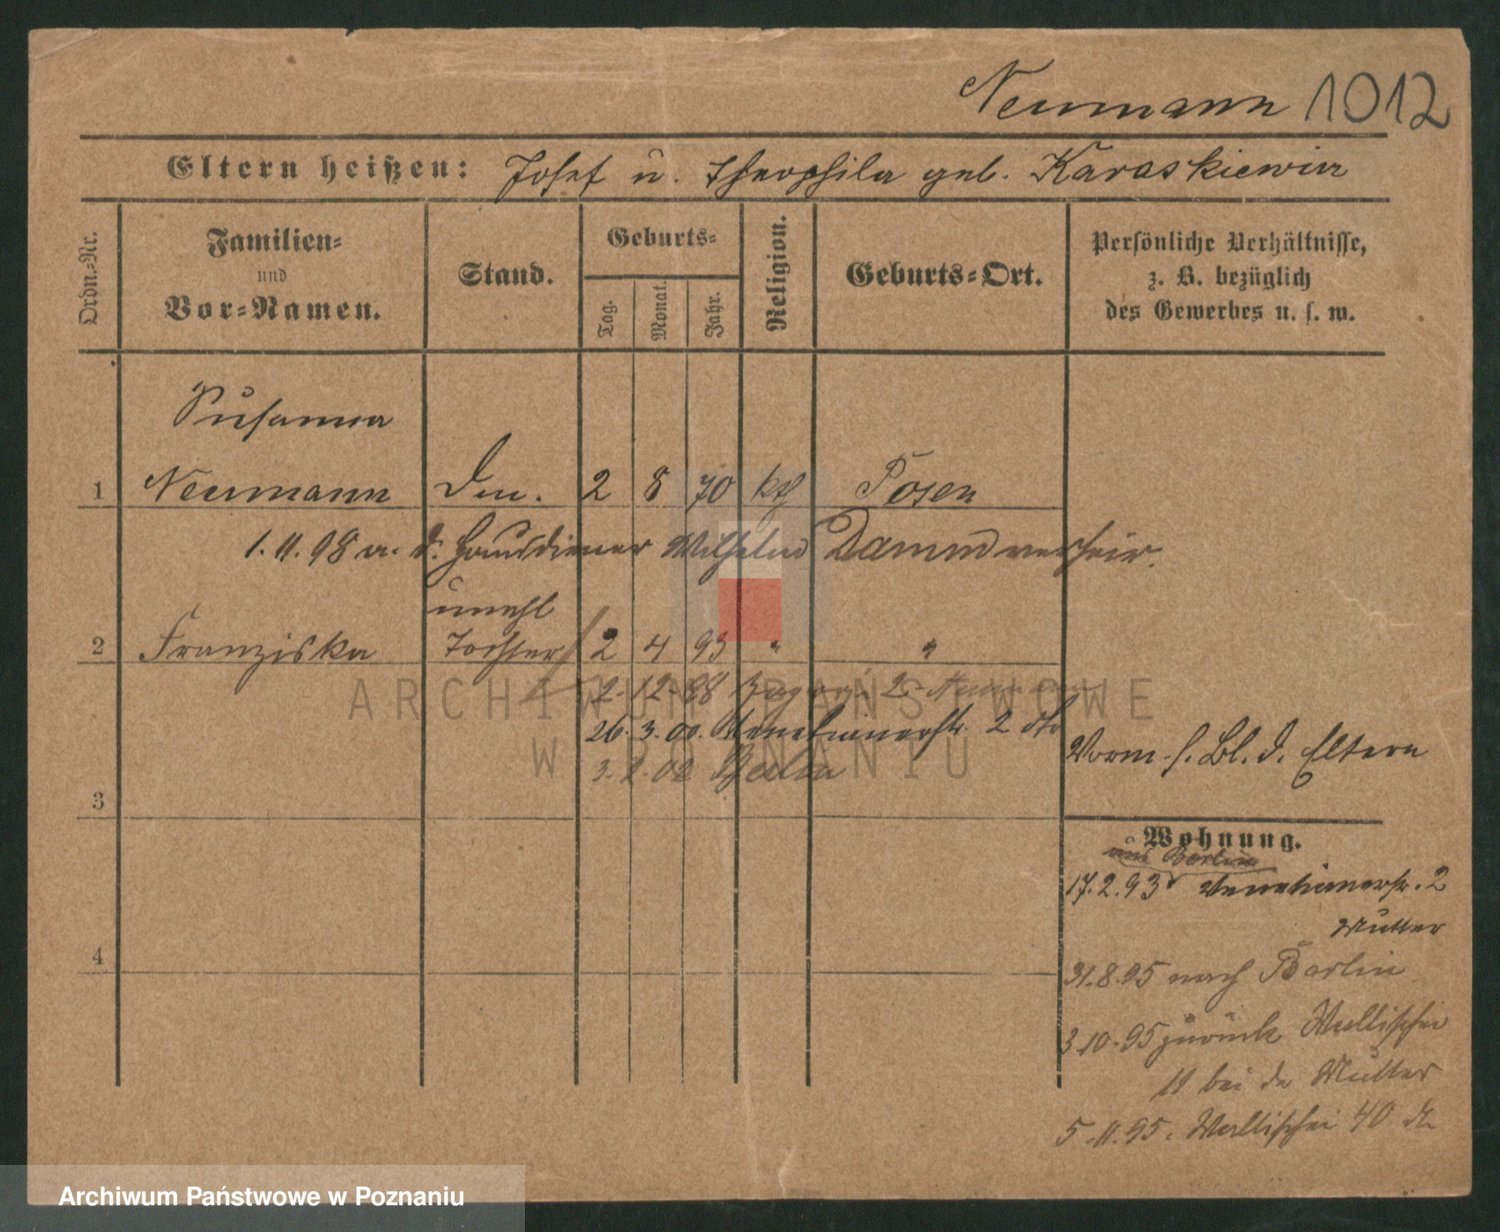 Neumann 1012
Eltern heißen: Josef u. Theophila geb. Karaskiewicz
Ordn.=Nr.
Familien=
und
Vor=Namen.
Stand.
Geburts=
Tag.
Monat.
Jahr.
Religion.
Geburts=Ort.
Persönliche Verhältnisse,
z. B. bezüglich
des Gewerbes u. s. w.
Susanna
1 Neumann 2 8 70 kth Posen
1.11.98 a. d. Hausdiener Wilhelm Damm verheir.
unehl
2 Franziska Tochter 2 4 93 " "
2.12.98
26.3.00. Venetianerstr. 2
Berlin
Vorm. s. Bl. d. Eltern
3
Wohnung.
aus Berlin
17.2.93 Venetianerstr. 2
Mutter
4
31.8.95 nach Berlin
3.10.95 zurück Wallischei
11 bei der Mutter
5.11.95. Wallischei 40
ARCHIWUM PAŃSTWOWE
W POZNANIU
Archiwum Państwowe w Poznaniu